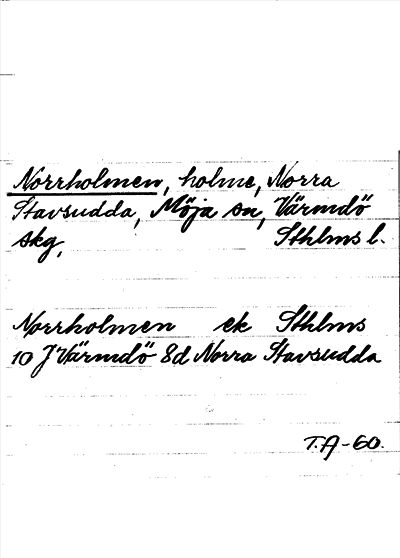 Norrholmen, holme, Norra
Stavsudda, Möja sn, Värmdö
skg, Sthlms l.
Norrholmen ek Sthlms
10 J Värmdö 8d Norra Stavsudda
T.A-60.